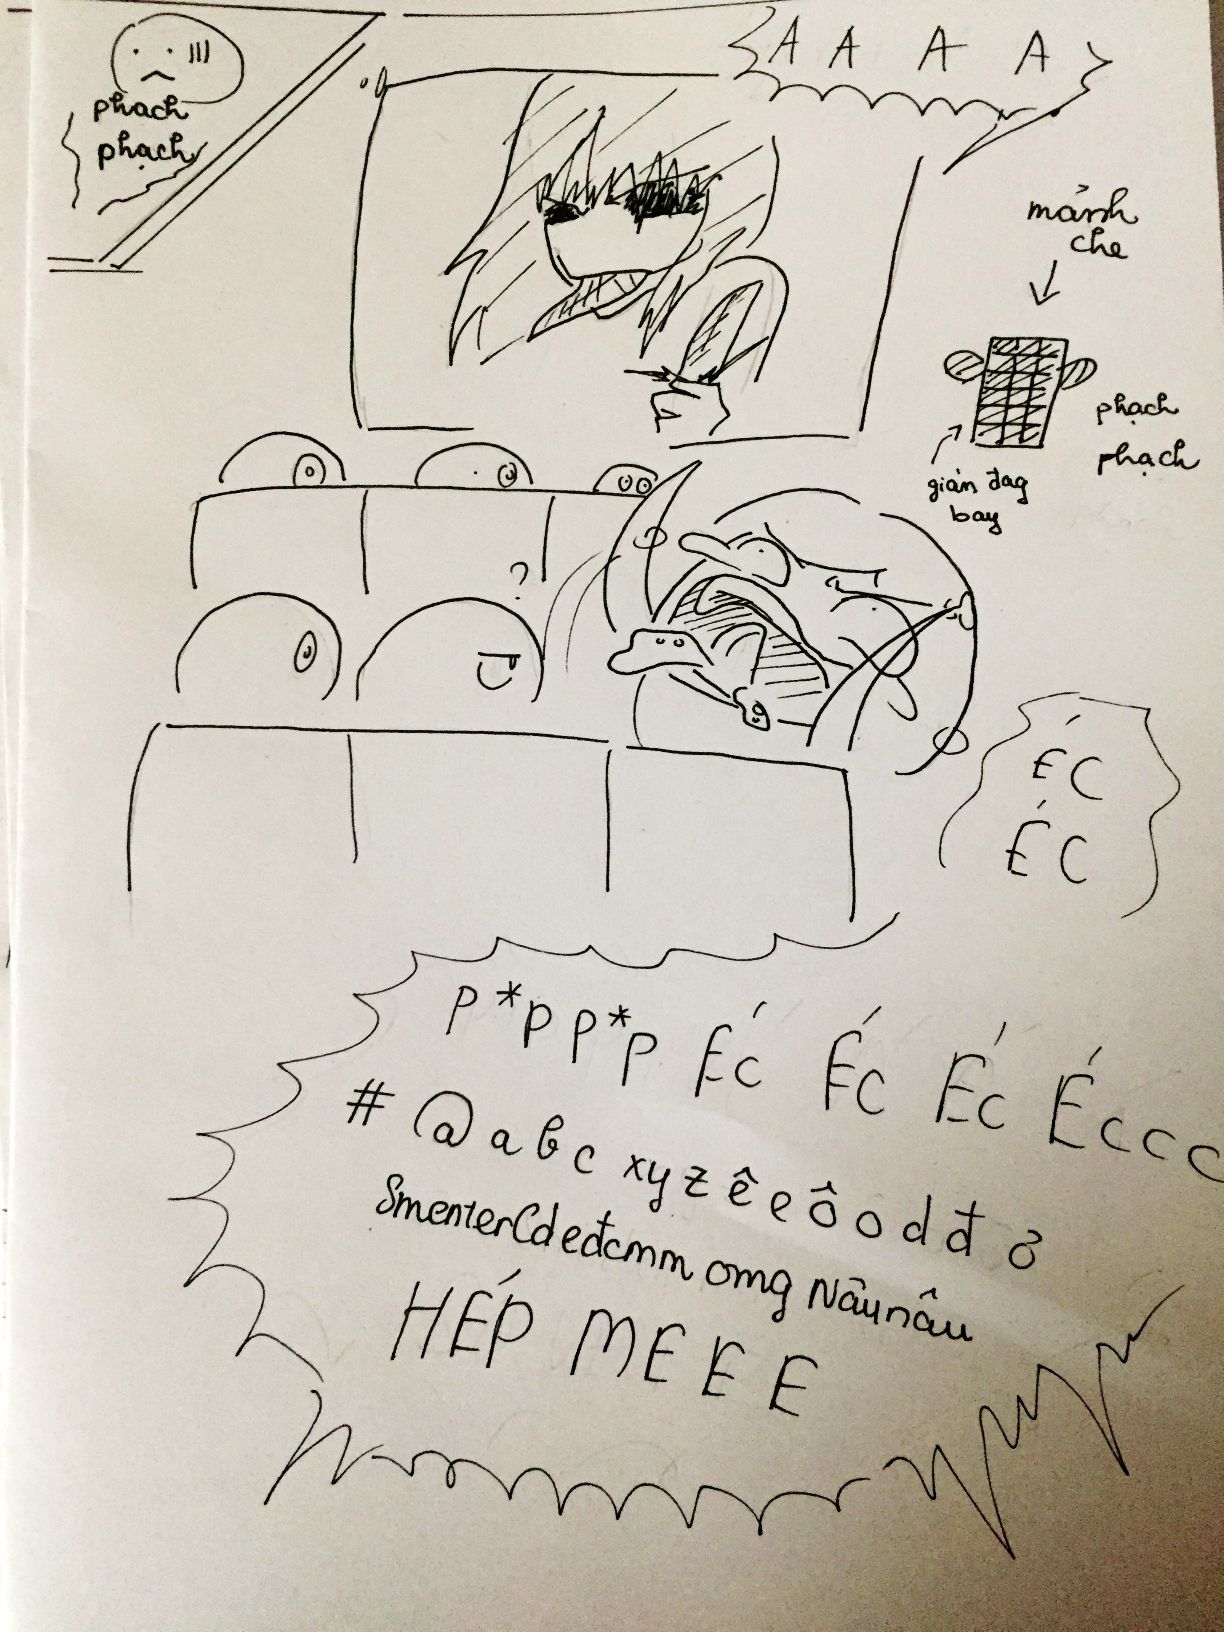 phạch
phạch
A A A A
mảnh
che
phạch
phạch
gián đag
bay
?
ÉC
ÉC
P*p p*p Éc Éc Éc Éccc
# @ a b c x y z ê e ô o d đ ở
SmenterCdeđcmm omg Nâunâu
HÉP MEEE